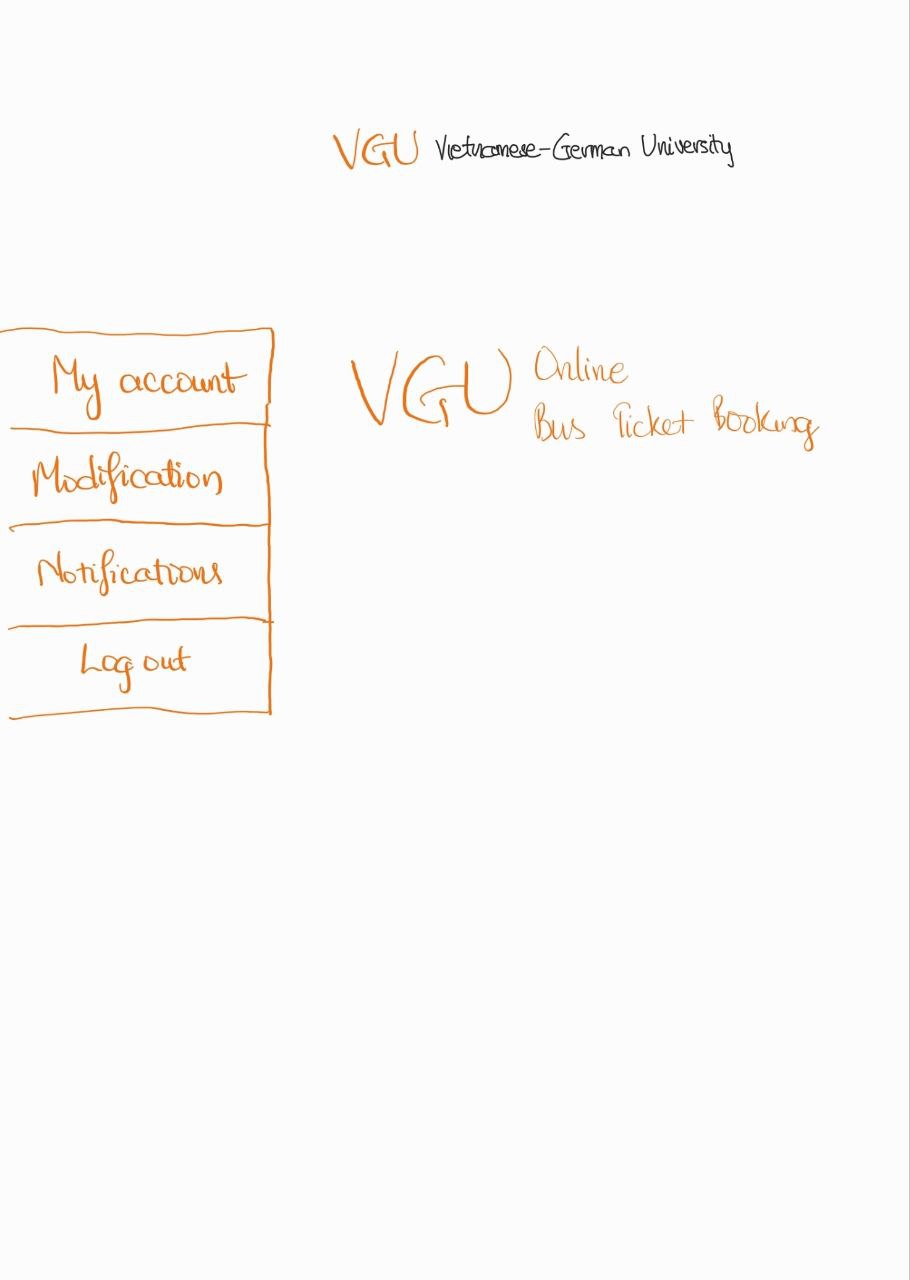 VGU Vietnamese-German University
My account
Modification
Notifications
Log out
VGU Online
Bus Ticket Booking